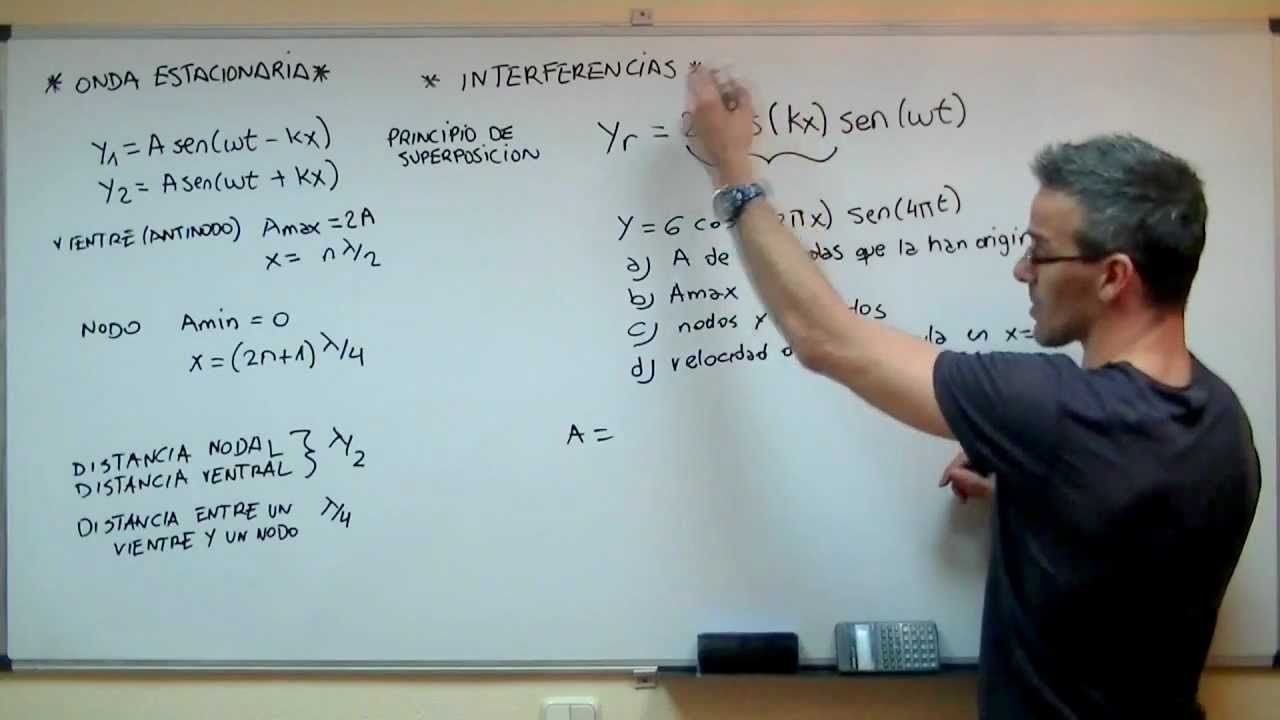 * ONDA ESTACIONARIA*
y1 = A sen(wt - kx)
y2 = A sen(wt + kx)
VIENTRE (ANTINODO) Amax = 2A
x = n λ/2
NODO Amin = 0
x = (2n+1) λ/4
DISTANCIA NODAL
DISTANCIA VENTRAL } λ/2
DISTANCIA ENTRE UN λ/4
VIENTRE Y UN NODO
* INTERFERENCIAS *
PRINCIPIO DE
SUPERPOSICION
yr = 2 (kx) sen(wt)
y = 6 cos πx) sen(4πt)
a) A de que la han
b) Amax
c) nodos y
d) velocidad en x=
A =